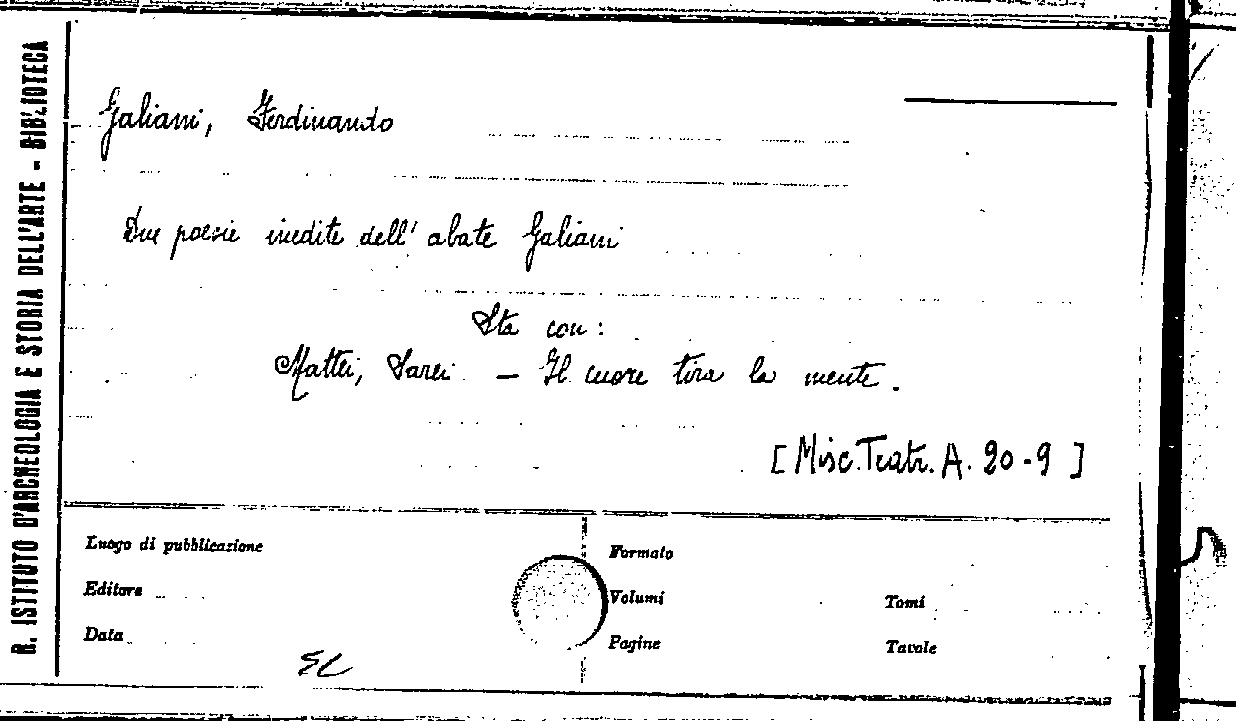 R. ISTITUTO D'ARCHEOLOGIA E STORIA DELL'ARTE - BIBLIOTECA
Galiani, Ferdinando
Due poesie inedite dell'abate Galiani
Sta con:
Mattei, Sarei - Il cuore tira la mente.
[Misc.Teatr. A. 20-9]
Luogo di pubblicazione
Editore
Data
Formato
Volumi
Pagine
Tomi
Tavole